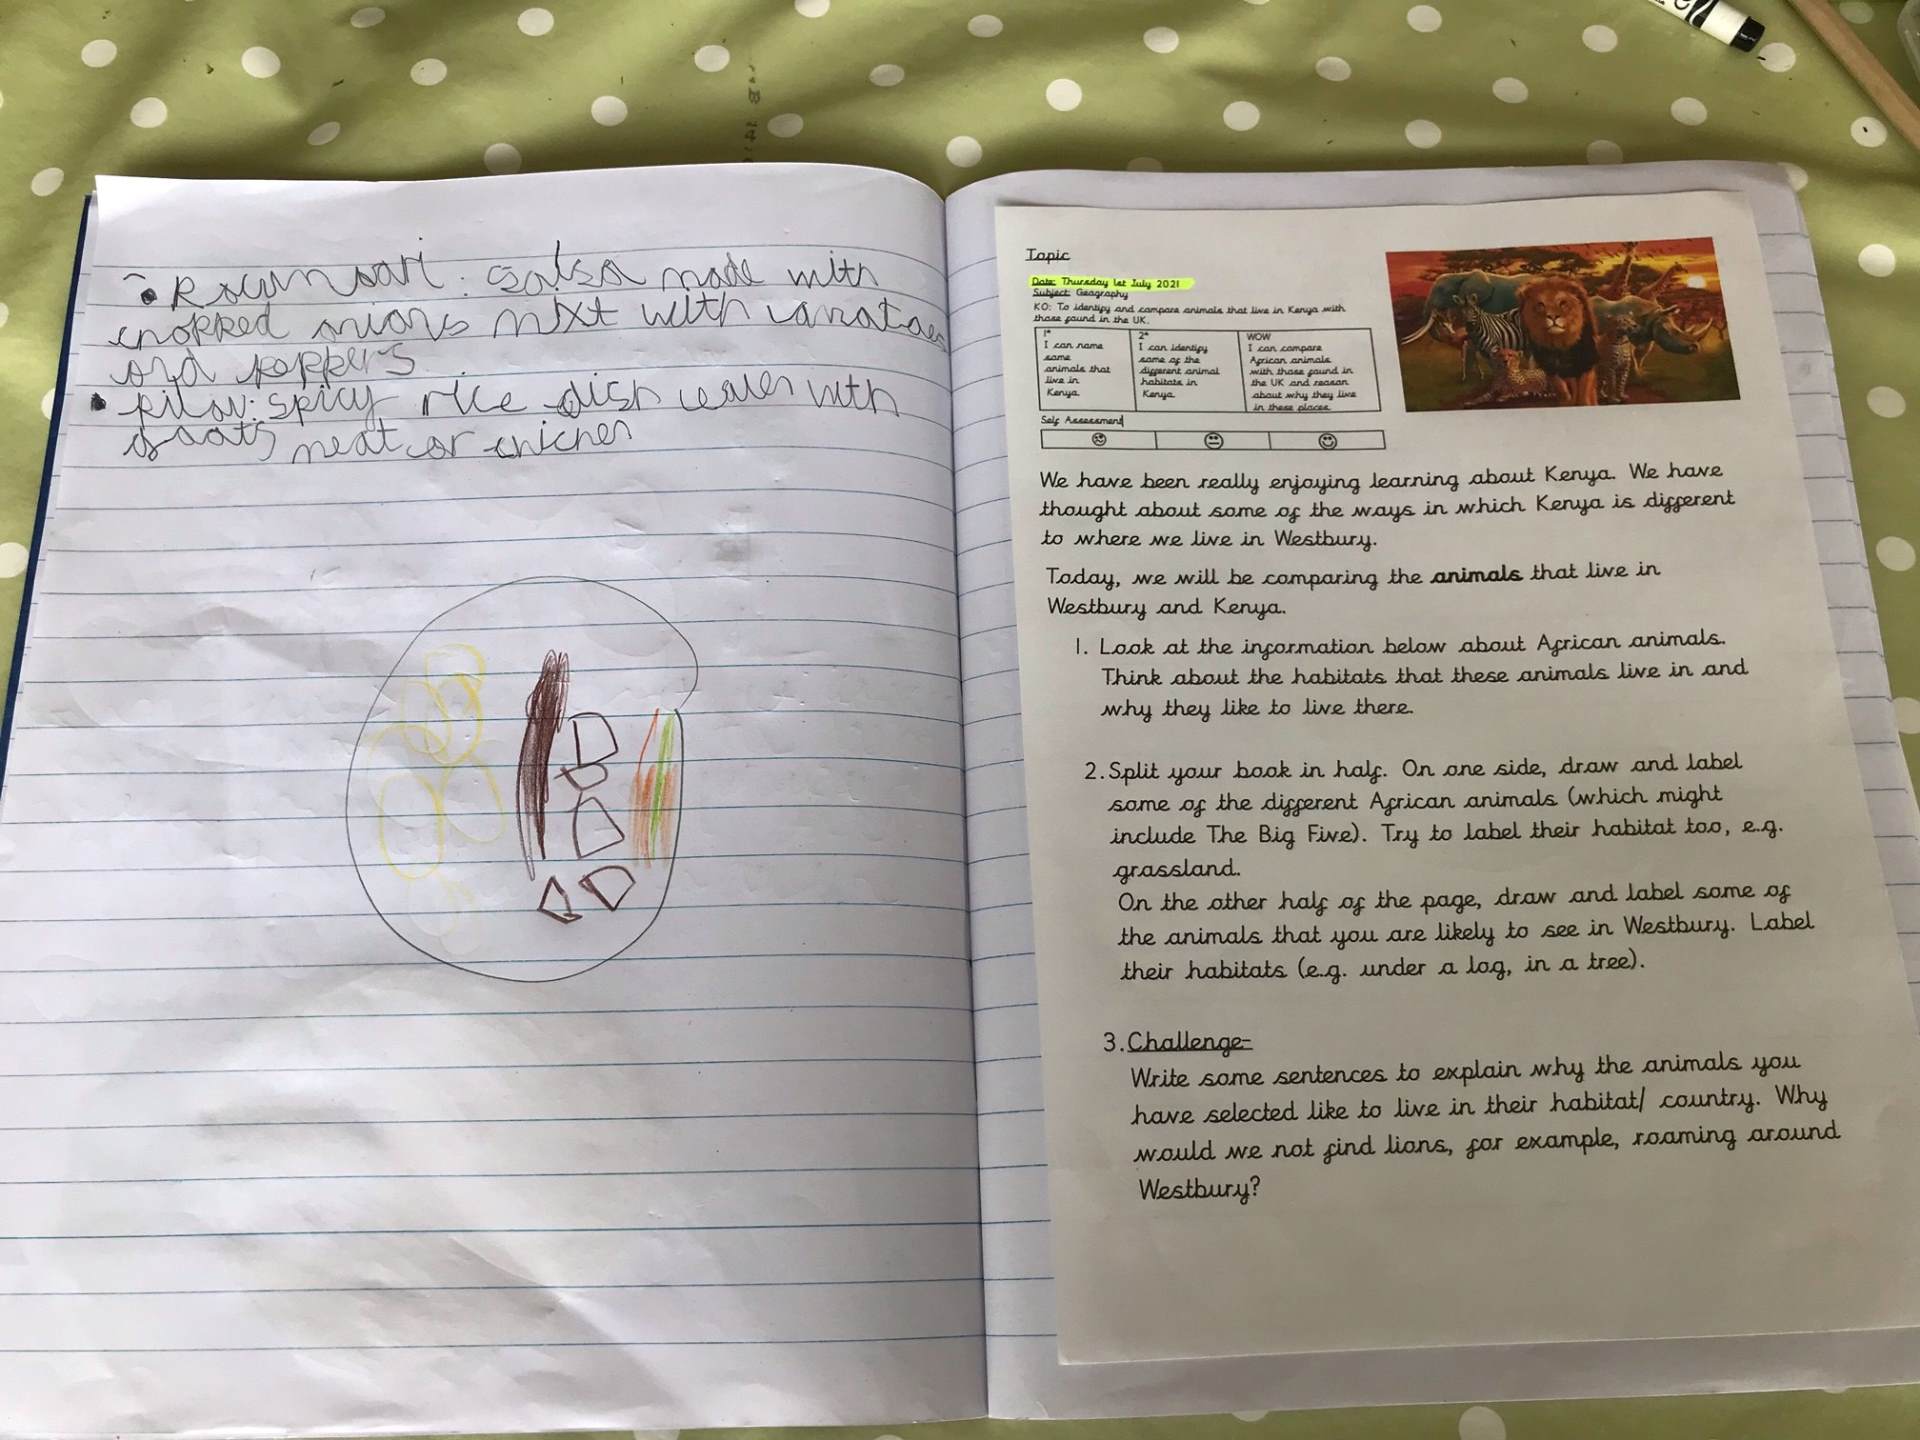 salsa made with
chopped onions mixt with
and peppers
pilau: spicy rice dish eaten with
goats meat or chicken
Topic
Date: Thursday 1st July 2021
Subject: Geography
KO: To identify and compare animals that live in Kenya with
those found in the UK.
1*
I can name
some
animals that
live in
Kenya.
2*
I can identify
some of the
different animal
habitats in
Kenya.
WOW
I can compare
African animals
with those found in
the UK and reason
about why they live
in these places.
Self Assessment
We have been really enjoying learning about Kenya. We have
thought about some of the ways in which Kenya is different
to where we live in Westbury.
Today, we will be comparing the animals that live in
Westbury and Kenya.
1. Look at the information below about African animals.
Think about the habitats that these animals live in and
why they like to live there.
2. Split your book in half. On one side, draw and label
some of the different African animals (which might
include The Big Five). Try to label their habitat too, e.g.
grassland.
On the other half of the page, draw and label some of
the animals that you are likely to see in Westbury. Label
their habitats (e.g. under a log, in a tree).
3. Challenge-
Write some sentences to explain why the animals you
have selected like to live in their habitat/ country. Why
would we not find lions, for example, roaming around
Westbury?